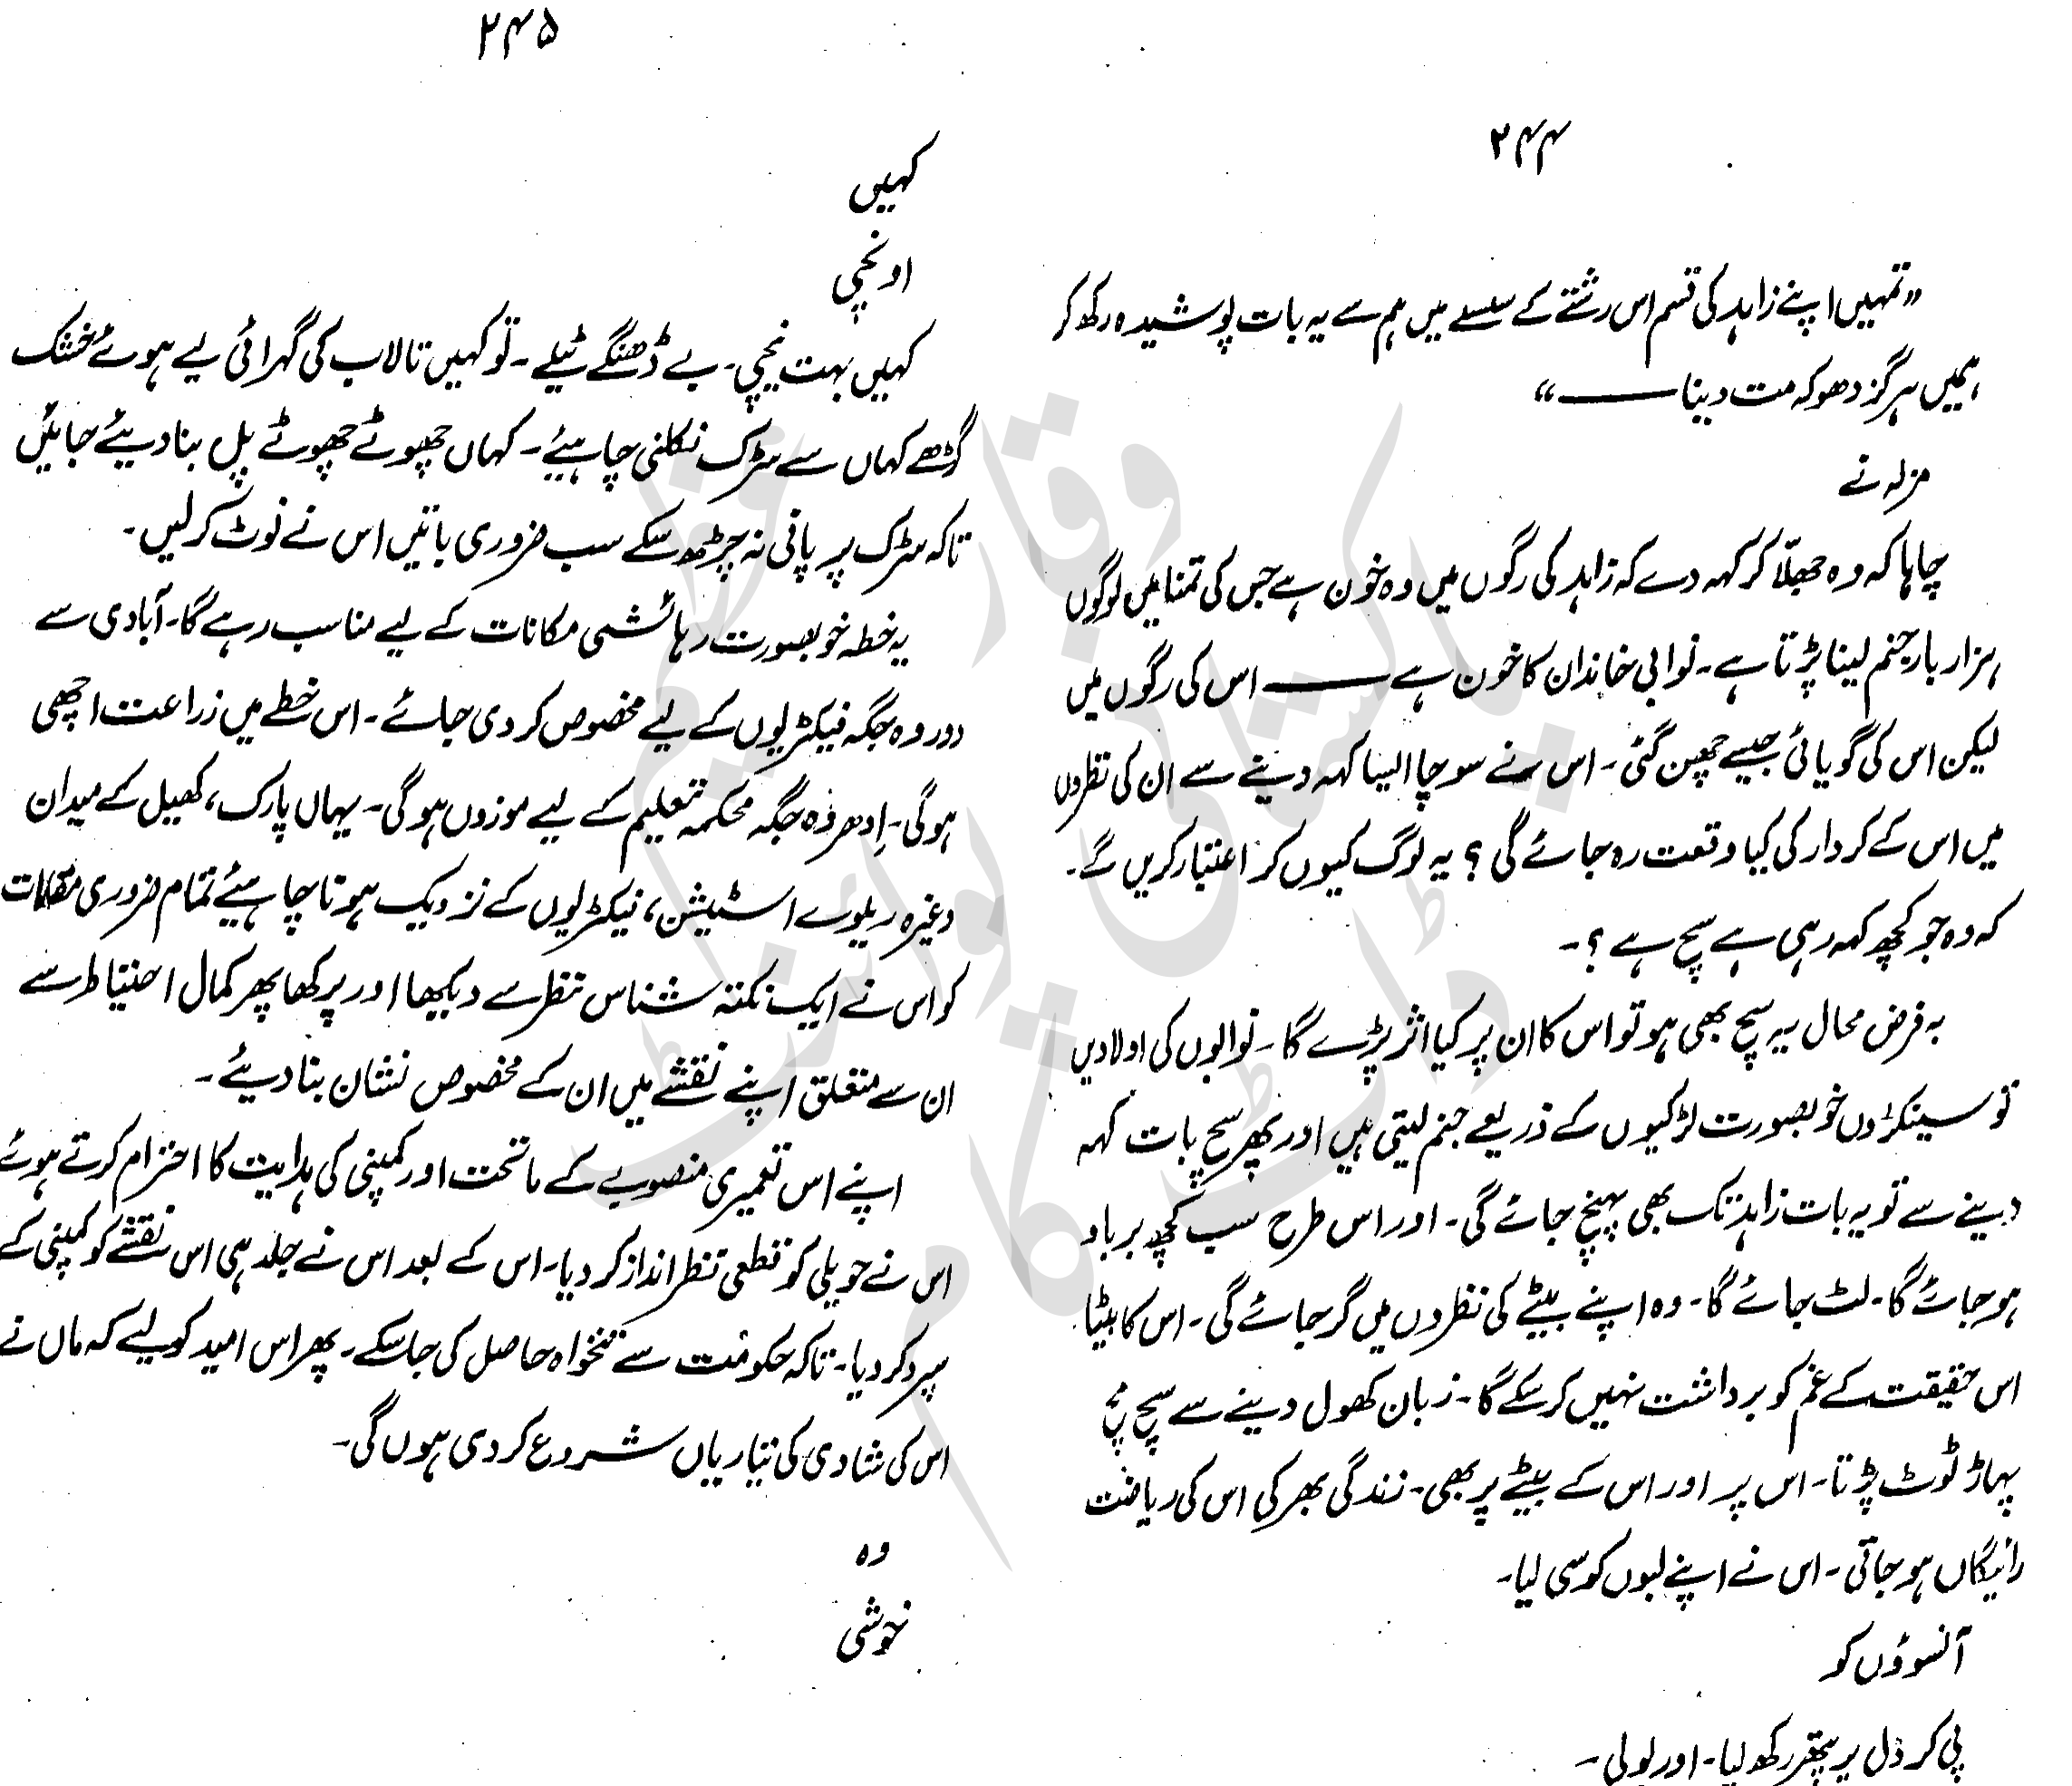 ۲۴۴
”تمہیں اپنے زاہد کی قسم اس رشتے کے سلسلے میں ہم سے یہ بات پوشیدہ رکھ کر
ہمیں ہرگز دھوکہ مت دینا ——“
مزلہ نے
چاہا کہ وہ جھلّا کر کہہ دے کہ زاہد کی رگوں میں وہ خون ہے جس کی تمنا میں لوگوں
ہزار بار جنم لینا پڑتا ہے۔ نوابی خاندان کا خون ہے —— اس کی رگوں میں
لیکن اس کی گویائی جیسے چھن گئی۔ اس نے سوچا ایسا کہہ دینے سے ان کی نظروں
میں اس کے کردار کی کیا وقعت رہ جائے گی؟ یہ لوگ کیوں کر اعتبار کریں گے۔
کہ وہ جو کچھ کہہ رہی ہے سچ ہے؟۔
بہ فرض محال یہ سچ بھی ہو تو اس کا ان پر کیا اثر پڑے گا۔ نوابوں کی اولادیں
تو سینکڑوں خوبصورت لڑکیوں کے ذریعے جنم لیتی ہیں اور پھر سچ بات کہہ
دینے سے تو یہ بات زاہد تک بھی پہنچ جائے گی۔ اور اس طرح سب کچھ برباد
ہو جائے گا۔ لٹ جائے گا۔ وہ اپنے بیٹے کی نظروں میں گر جائے گی۔ اس کا بیٹا
اس حقیقت کے غم کو برداشت نہیں کر سکے گا۔ زبان کھول دینے سے سچ مچ
پہاڑ ٹوٹ پڑتا۔ اس پر اور اس کے بیٹے پر بھی۔ زندگی بھر کی اس کی ریاضت
رائیگاں ہو جاتی۔ اس نے اپنے لبوں کو سی لیا۔
آنسوؤں کو
پی کر دل پر پتھر رکھ لیا۔ اور بولی۔
۲۴۵
کہیں
اونچی
کہیں بہت نیچی۔ بے ڈھنگے ٹیلے۔ تو کہیں تالاب کی گہرائی لیے ہوئے خشک
گڑھے کہاں سے سڑک نکلنی چاہیئے۔ کہاں چھوٹے چھوٹے پل بنا دیئے جائیں
تاکہ سڑک پر پانی نہ چڑھ سکے سب ضروری باتیں اس نے نوٹ کر لیں۔
یہ خطہ خوبصورت رہائشی مکانات کے لیے مناسب رہے گا۔ آبادی سے
دور وہ جگہ فیکٹریوں کے لیے مخصوص کر دی جائے۔ اس خطے میں زراعت اچھی
ہو گی۔ اِدھر وہ جگہ محکمہ تعلیم کے لیے موزوں ہو گی۔ یہاں پارک، کھیل کے میدان
وغیرہ ریلوے اسٹیشن، فیکٹریوں کے نزدیک ہونا چاہیئے تمام ضروری مقامات
کو اس نے ایک نکتہ شناس نظر سے دیکھا اور پرکھا پھر کمال احتیاط سے
ان سے متعلق اپنے نقشے میں ان کے مخصوص نشان بنا دیئے۔
اپنے اس تعمیری منصوبے کے ماتحت اور کمپنی کی ہدایت کا احترام کرتے ہوئے
اس نے حویلی کو قطعی نظر انداز کر دیا۔ اس کے بعد اس نے جلد ہی اس نقشے کو کمپنی کے
سپرد کر دیا۔ تاکہ حکومت سے تنخواہ حاصل کی جا سکے۔ پھر اس امید کو لیے کہ ماں نے
اس کی شادی کی تیاریاں شروع کر دی ہوں گی۔
وہ
خوشی
پاکستانی پوائنٹ
ڈاٹ کام
وقار عظیم